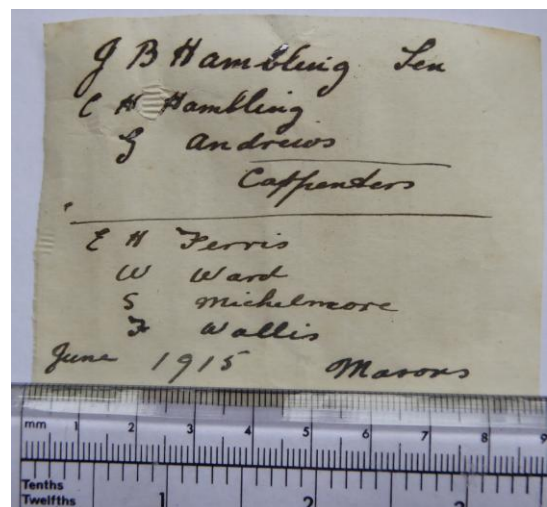 J B Hambling Sen
C H Hambling
G Andrews
Carpenters
E H Ferris
W Ward
S Michelmore
F Wallis
June 1915 Masons
mm 1 2 3 4 5 6 7 8 9
Tenths
Twelfths 1 2